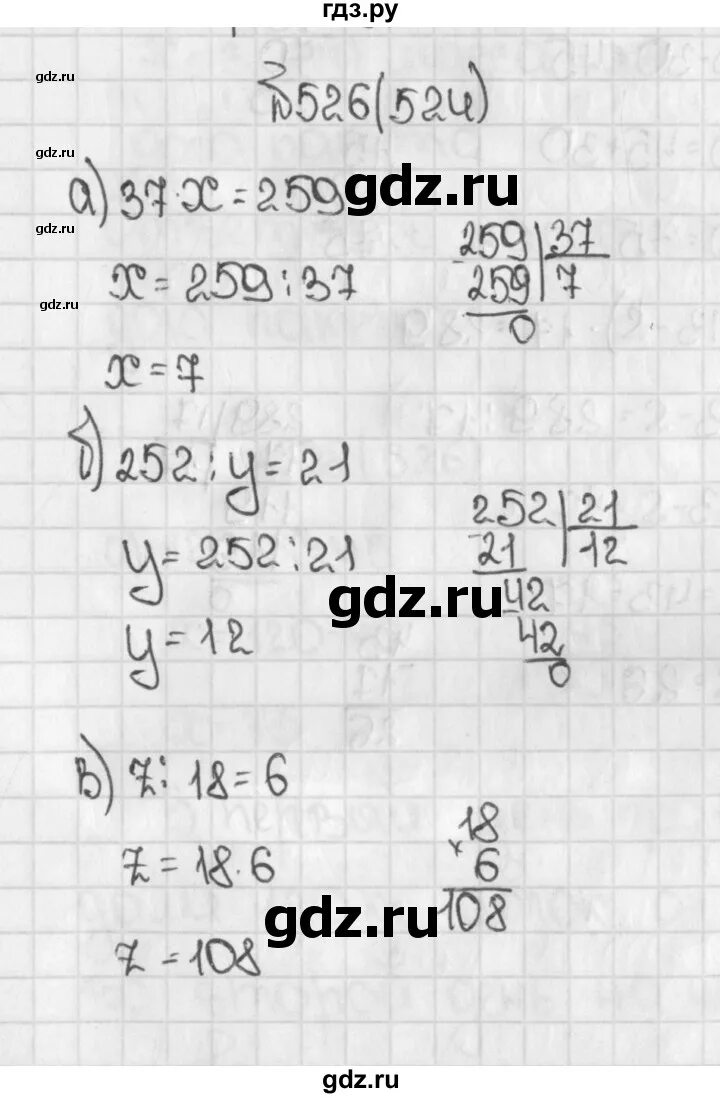 гдз.ру
gdz.ru
№526(524)
gdz.ru
gdz.ru
а) 37·x=259
gdz.ru
x=259:37
259|37
259|7
0
gdz.ru
x=7
б) 252:y=21
y=252:21
y=12
252|21
21|12
42
42
0
gdz.ru
в) z:18=6
z=18·6
z=108
18
× 6
108
gdz.ru
gdz.ru